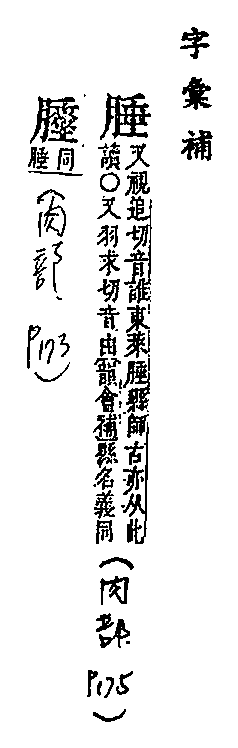 字彙補
腄
又視追切音誰東萊腄縣師古亦从此
讀○又羽求切音由韻會補縣名義同
(肉部 P.175)
同腄
(肉部 P.173)